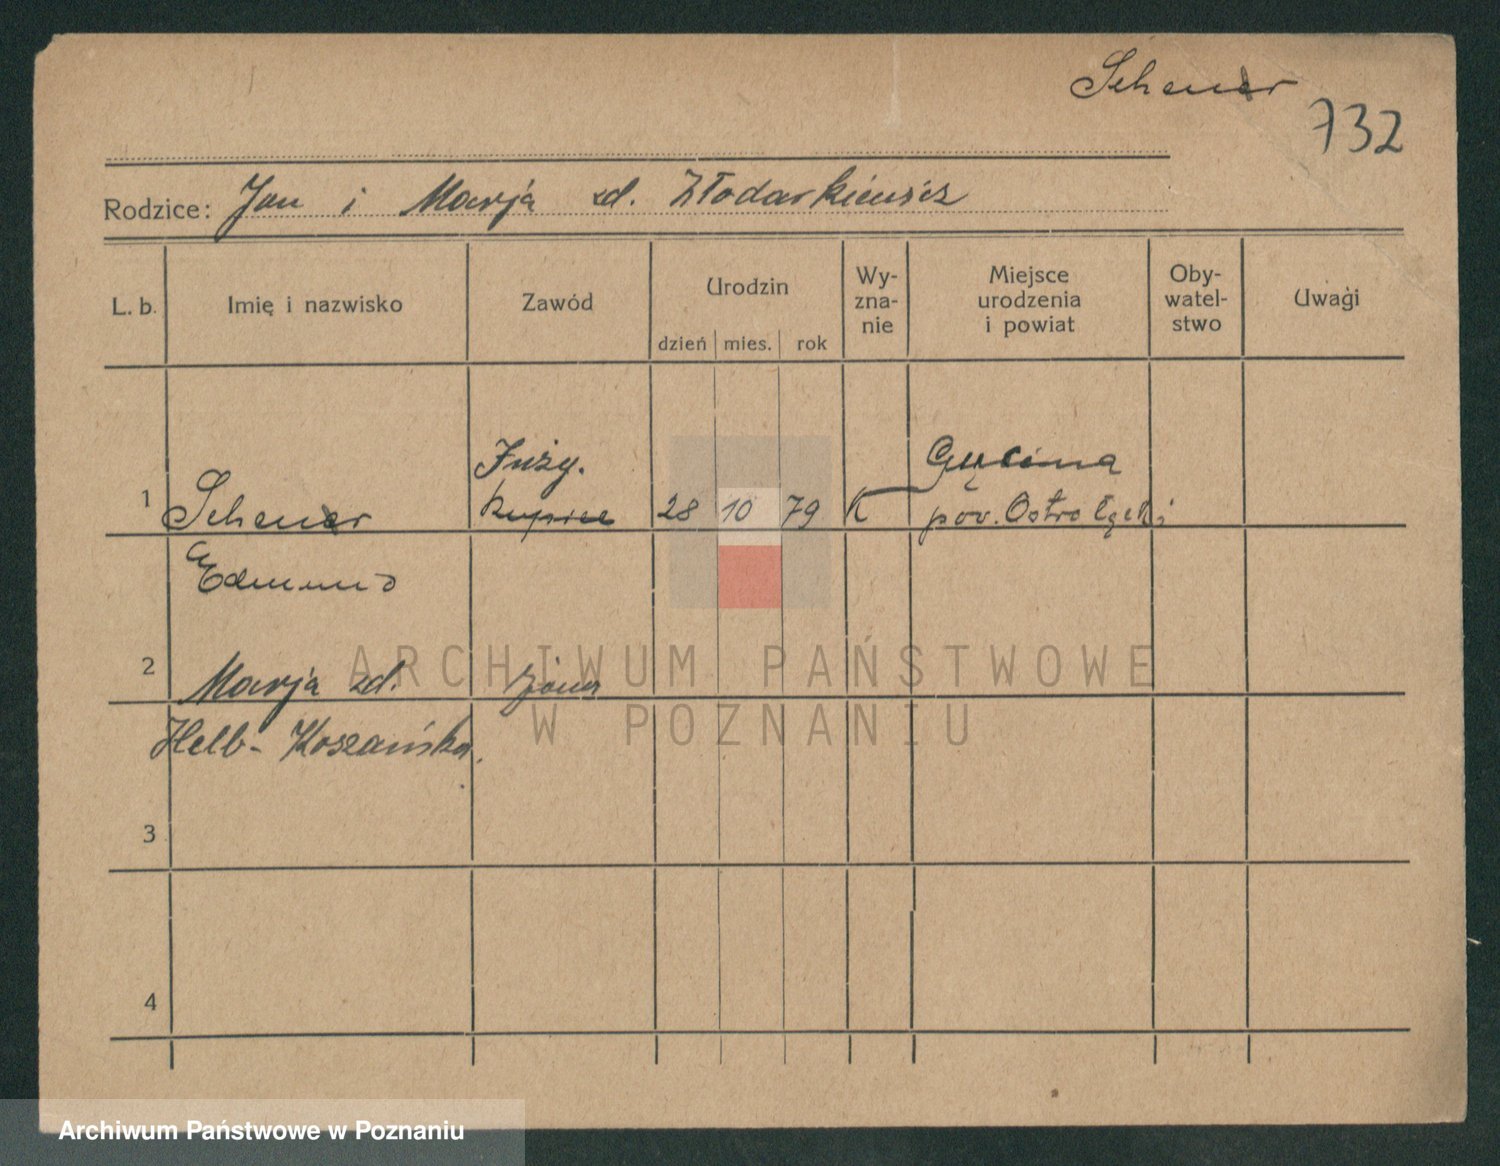 Schener
732
Rodzice: Jan i Marja zd. Złodarkiewicz
L. b. Imię i nazwisko Zawód Urodzin dzień mies. rok Wy-zna-nie Miejsce urodzenia i powiat Oby-watel-stwo Uwagi
Inży. Gęcina
1 Schener kupiec 28 10 79 K pow. Ostrołęcki
Edmund
2 Marja zd. żona
Helb-Koszańska
3
4
ARCHIWUM PAŃSTWOWE
W POZNANIU
Archiwum Państwowe w Poznaniu